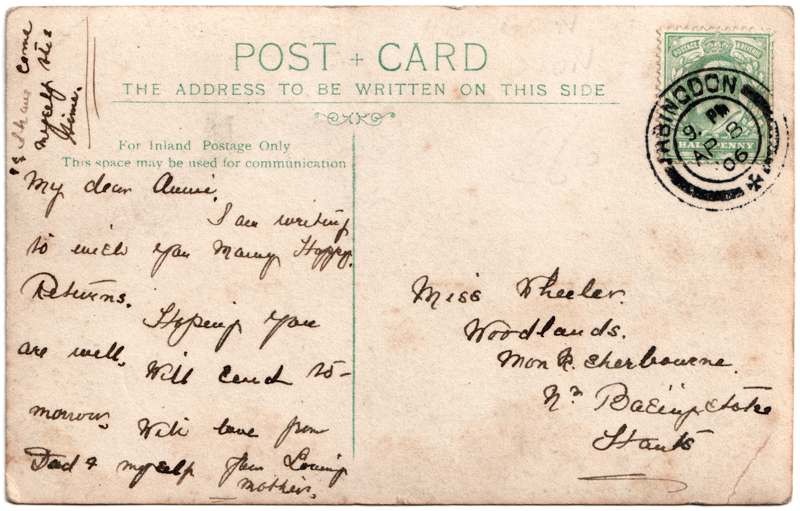 POST + CARD
THE ADDRESS TO BE WRITTEN ON THIS SIDE
For Inland Postage Only
This space may be used for communication
"I have come
myself this
time.
My dear Annie.
I am writing
to wish you Many Happy
Returns.
Hoping you
are well. Will send to-
morrow. With love from
Dad & myself Your Loving
mother.
POSTAGE & REVENUE
HALF PENNY
ABINGDON
9 PM
AP 8
06
Miss Wheeler.
Woodlands.
Monk Sherbourne.
Nr Basingstoke
Hants